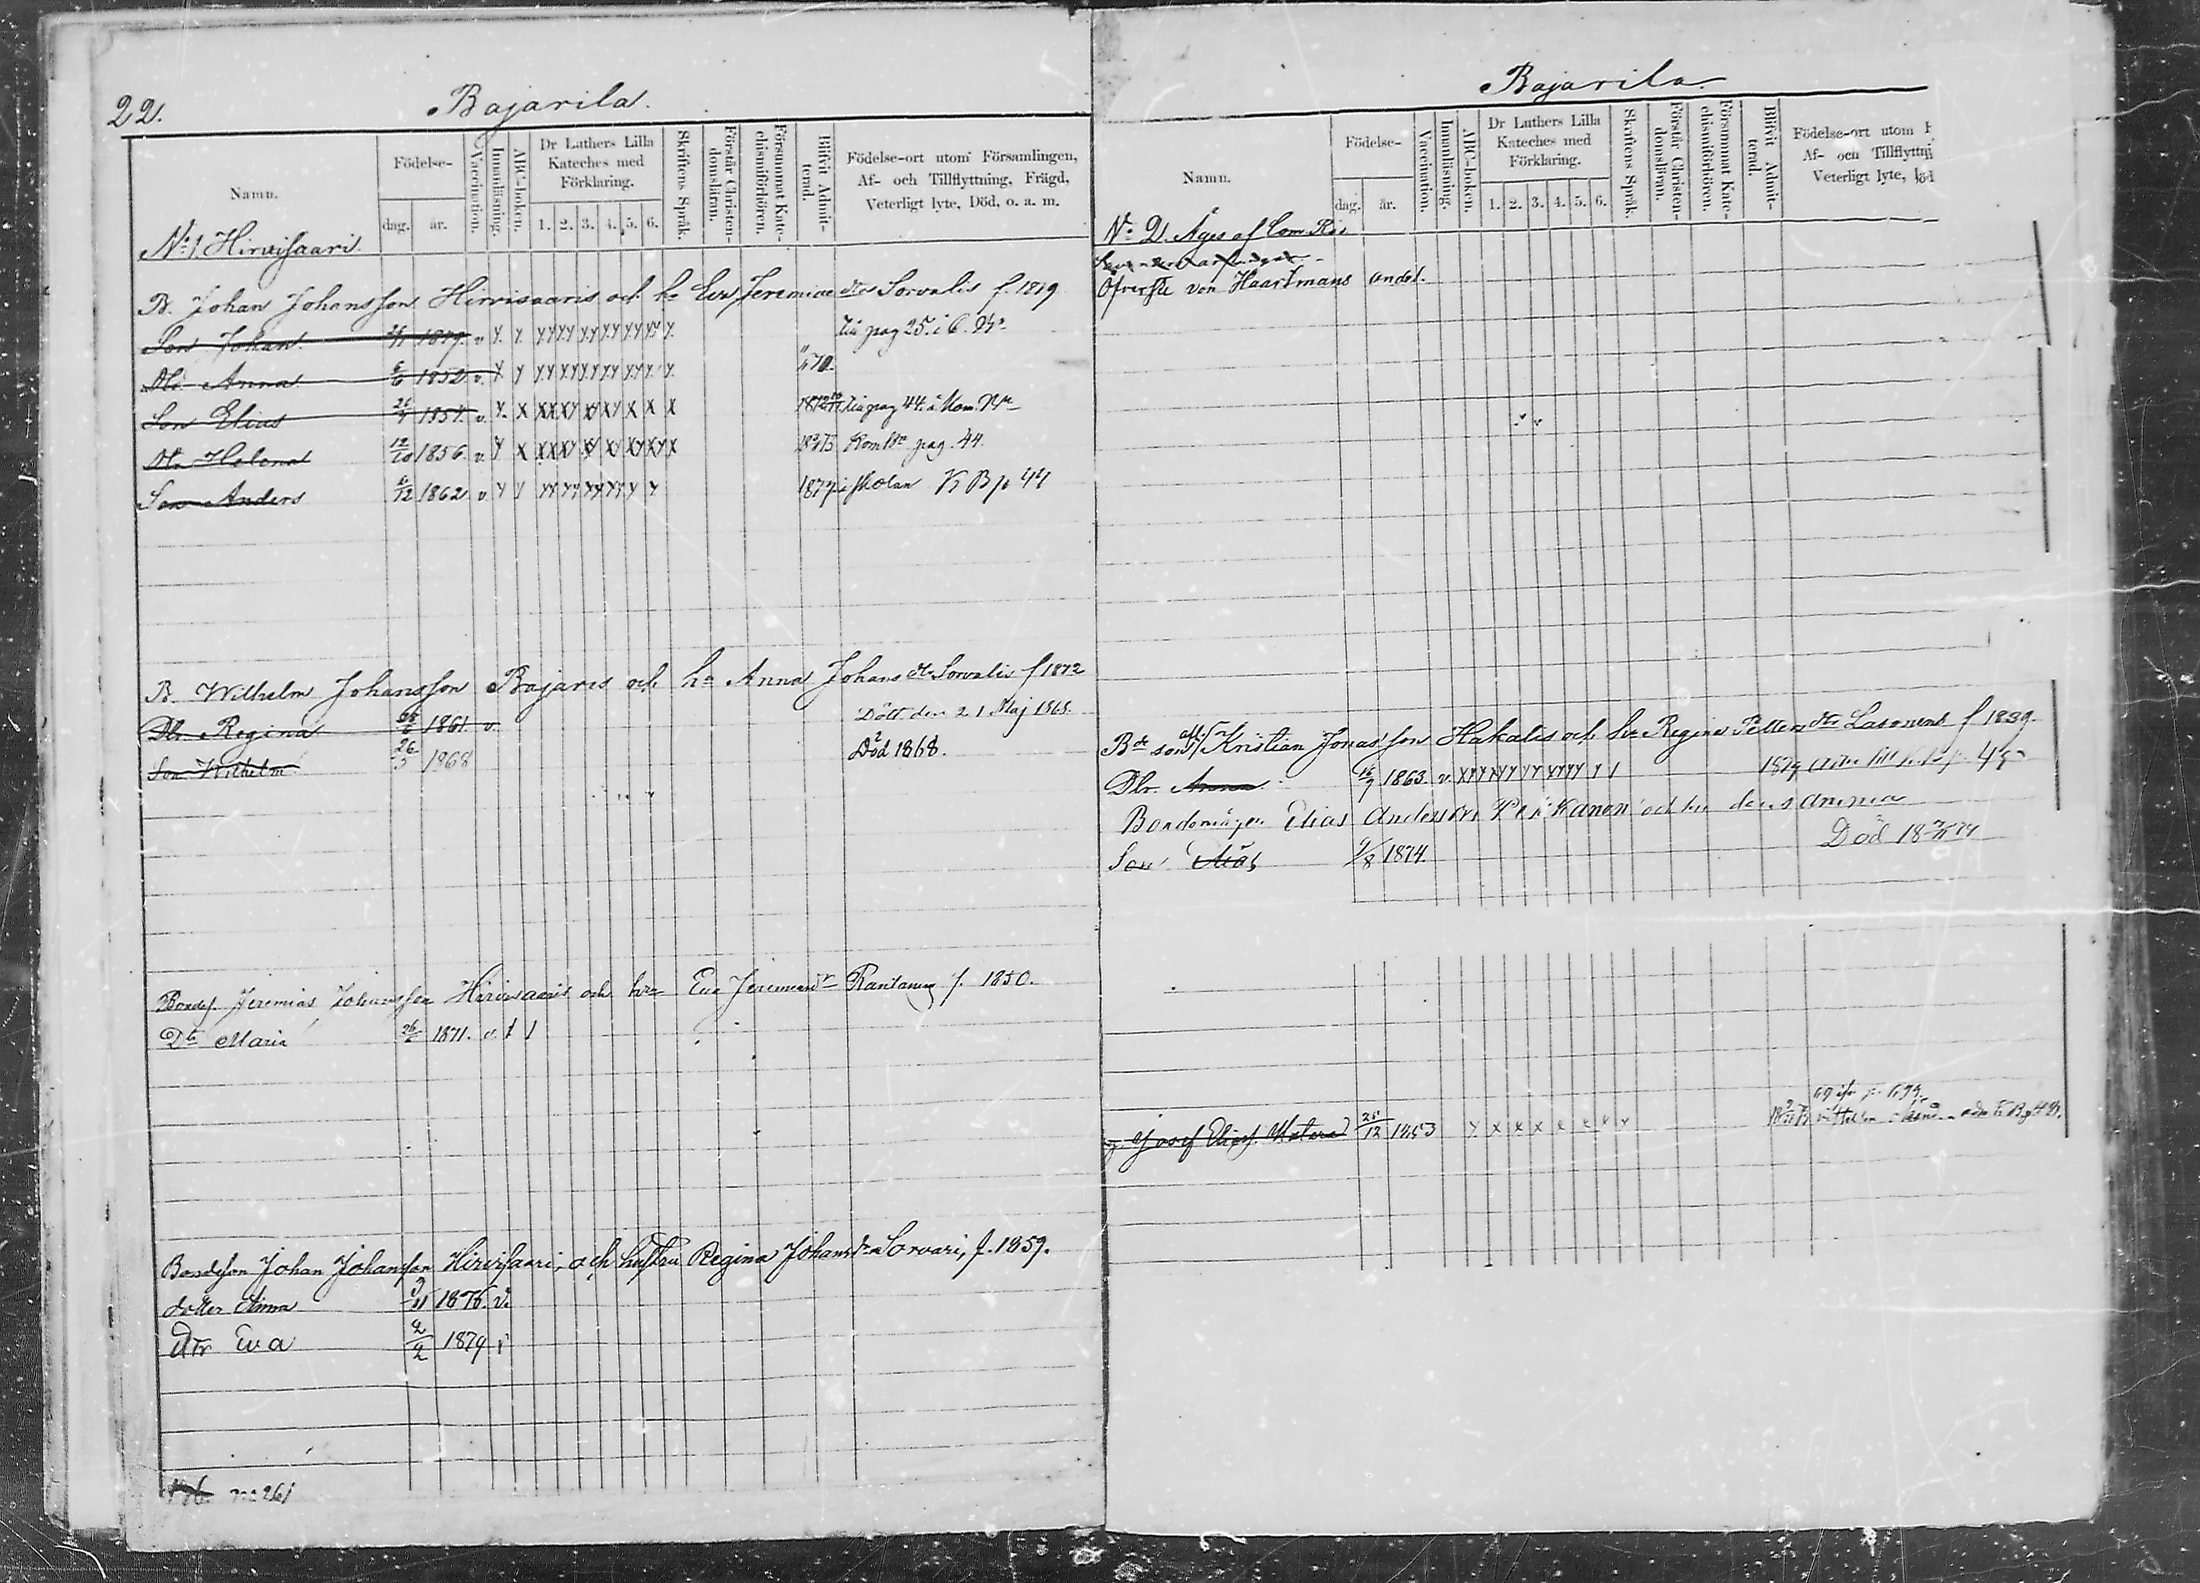 22.
Bajarila.
Namn.
Födelse-
dag.
år.
Vaccination.
Innanläsning.
ABC-boken.
Dr Luthers Lilla Kateches med Förklaring.
1. 2. 3. 4. 5. 6.
Skriftens Språk.
Förstår Christendomsläran.
Försummat Katechismiförhören.
Blifvit Admitterad.
Födelse-ort utom Församlingen,
Af- och Tillflyttning, Frägd,
Veterligt lyte, Död, o. a. m.
No 1. Hirvisaari.
B. Johan Johansson Hirvisaaris och h. Eva Jeremiae dtr Sorvalis f. 1819
Son Johan. 1849. v.
pag 25. i
Dtr Anna 1852 v.
Son Elias 1854. v. pag 44. i Kom. Bn
Dtr Helena 12/10 1856. v. Kom Bn pag. 44.
Son Anders 6/12 1862 v. i skolan K B p 44
B. Wilhelm Johansson Bajaris och h. Anna Johans dtr Sorvalis f 1842
Dtr. Regina 1861. v. Dött den 21 Maj 1868.
Son Wilhelm. 26/5 1868 Död 1868.
Bondes. Jeremias Johansson Hirvisaaris och hu Eva Jeremiasdr Rantanen f. 1850.
Dtr Maria 1871. v.
Bondeson Johan Johansson Hirvisaari, och hustru Regina Johansdr Sorvari, f. 1859.
dotter Anna 1878. v.
dtr Eva 2/2 1879
261
Bajarila
Namn.
Födelse-
dag.
år.
Vaccination.
Innanläsning.
ABC-boken.
Dr Luthers Lilla Kateches med Förklaring.
1. 2. 3. 4. 5. 6.
Skriftens Språk.
Förstår Christendomsläran.
Försummat Katechismiförhören.
Blifvit Admitterad.
Födelse-ort utom
Af- och Tillflyttni
Veterligt lyte,
No 2. Äges af Com. Råd
Öfverste von Haartmans andel.
Bde son Kristian Jonasson Hakalis och hu Regina Petters dtr Lasonens f 1839.
Dtr. Anna 1863. v. 1879
Bondemågen Elias Andersson Pekkanen och hu dens Anna
Son Elias 9/8 1874. Död
Josef Eliass. 25/12 1853